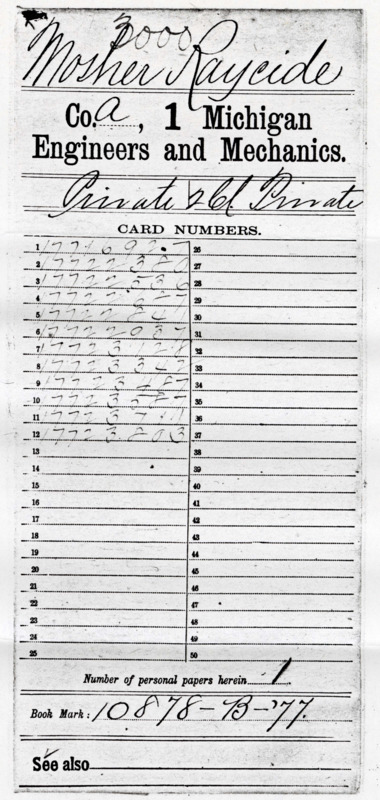 3000
Mosher Raycide
Co. A, 1 Michigan
Engineers and Mechanics.
Private | 2 Cl Private
CARD NUMBERS.
1 26
2 27
3 28
4 29
5 30
6 17722937 31
7 17723128 32
8 17723342 33
9 17723487 34
10 17723587 35
11 36
12 17723803 37
13 38
14 39
15 40
16 41
17 42
18 43
19 44
20 45
21 46
22 47
23 48
24 49
25 50
Number of personal papers herein 1
Book Mark: 10878-B-'77.
See also